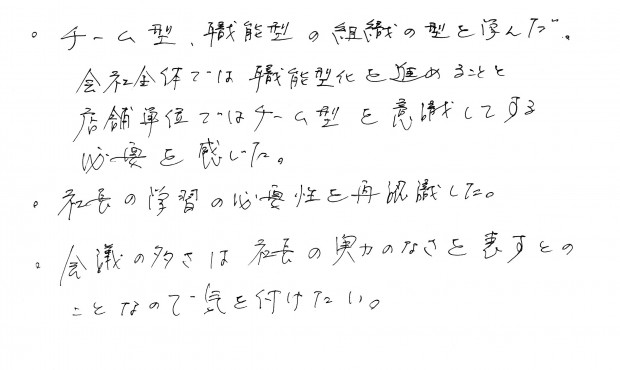 。チーム型、職能型の組織の型を学んだ。
会社全体では職能型化を進めることと
店舗単位ではチーム型を意識してする
必要を感じた。
。社長の学習の必要性を再認識した。
。会議の多さは社長の実力のなさを表すとの
ことなので気を付けたい。